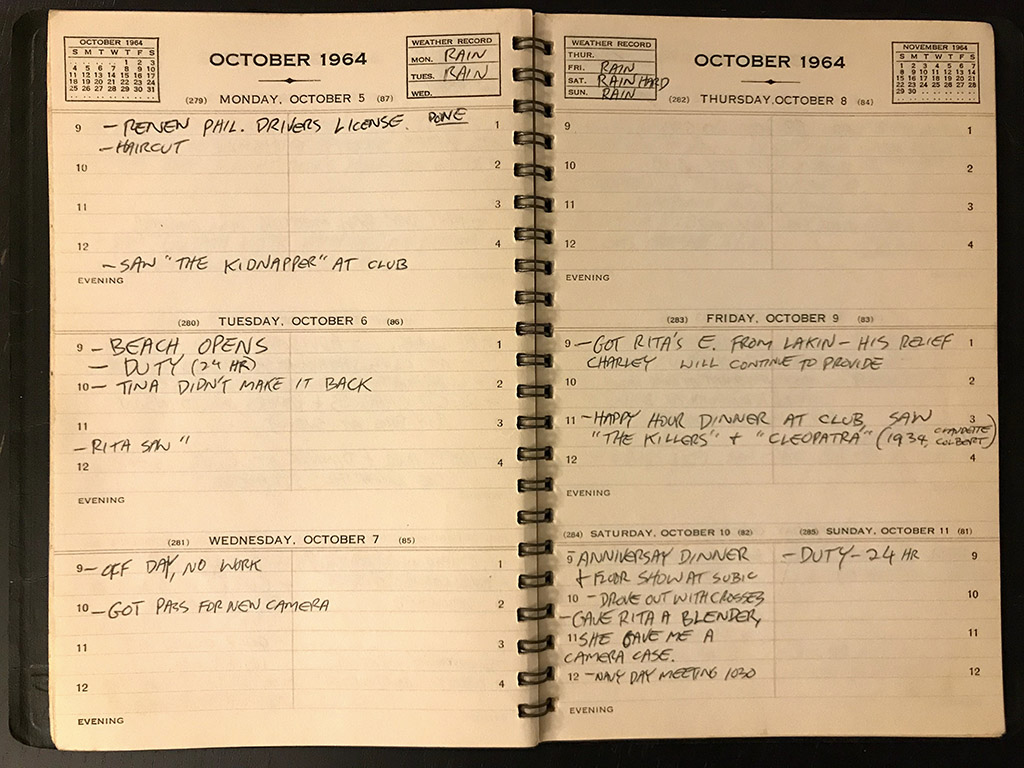 OCTOBER 1964
S M T W T F S
1 2 3
4 5 6 7 8 9 10
11 12 13 14 15 16 17
18 19 20 21 22 23 24
25 26 27 28 29 30 31
OCTOBER 1964
WEATHER RECORD
MON. RAIN
TUES. RAIN
WED.
(279) MONDAY, OCTOBER 5 (87)
9 – RENEN PHIL. DRIVERS LICENSE. DONE 1
– HAIRCUT
10 2
11 3
12 4
– SAW "THE KIDNAPPER" AT CLUB
EVENING
(280) TUESDAY, OCTOBER 6 (86)
9 – BEACH OPENS 1
– DUTY (24 HR)
10 – TINA DIDN'T MAKE IT BACK 2
11 3
– RITA SAW "
12 4
EVENING
(281) WEDNESDAY, OCTOBER 7 (85)
9 – OFF DAY, NO WORK 1
10 – GOT PASS FOR NEW CAMERA 2
11 3
12 4
EVENING
WEATHER RECORD
THUR.
FRI. RAIN
SAT. RAIN HARD
SUN. RAIN
OCTOBER 1964
NOVEMBER 1964
S M T W T F S
1 2 3 4 5 6 7
8 9 10 11 12 13 14
15 16 17 18 19 20 21
22 23 24 25 26 27 28
29 30
(282) THURSDAY, OCTOBER 8 (84)
9 1
10 2
11 3
12 4
EVENING
(283) FRIDAY, OCTOBER 9 (83)
9 – GOT RITA'S E. FROM LAKIN – HIS RELIEF 1
CHARLEY WILL CONTINUE TO PROVIDE
10 2
11 – HAPPY HOUR DINNER AT CLUB, SAW 3
"THE KILLERS" + "CLEOPATRA" (1934, CLAUDETTE COLBERT)
12 4
EVENING
(284) SATURDAY, OCTOBER 10 (82)
9 – ANNIVERSAY DINNER
+ FLOOR SHOW AT SUBIC
10 – DROVE OUT WITH CROSSES
– GAVE RITA A BLENDER,
11 SHE GAVE ME A
CAMERA CASE.
12 – NAVY DAY MEETING 1030
EVENING
(285) SUNDAY, OCTOBER 11 (81)
– DUTY – 24 HR 9
10
11
12